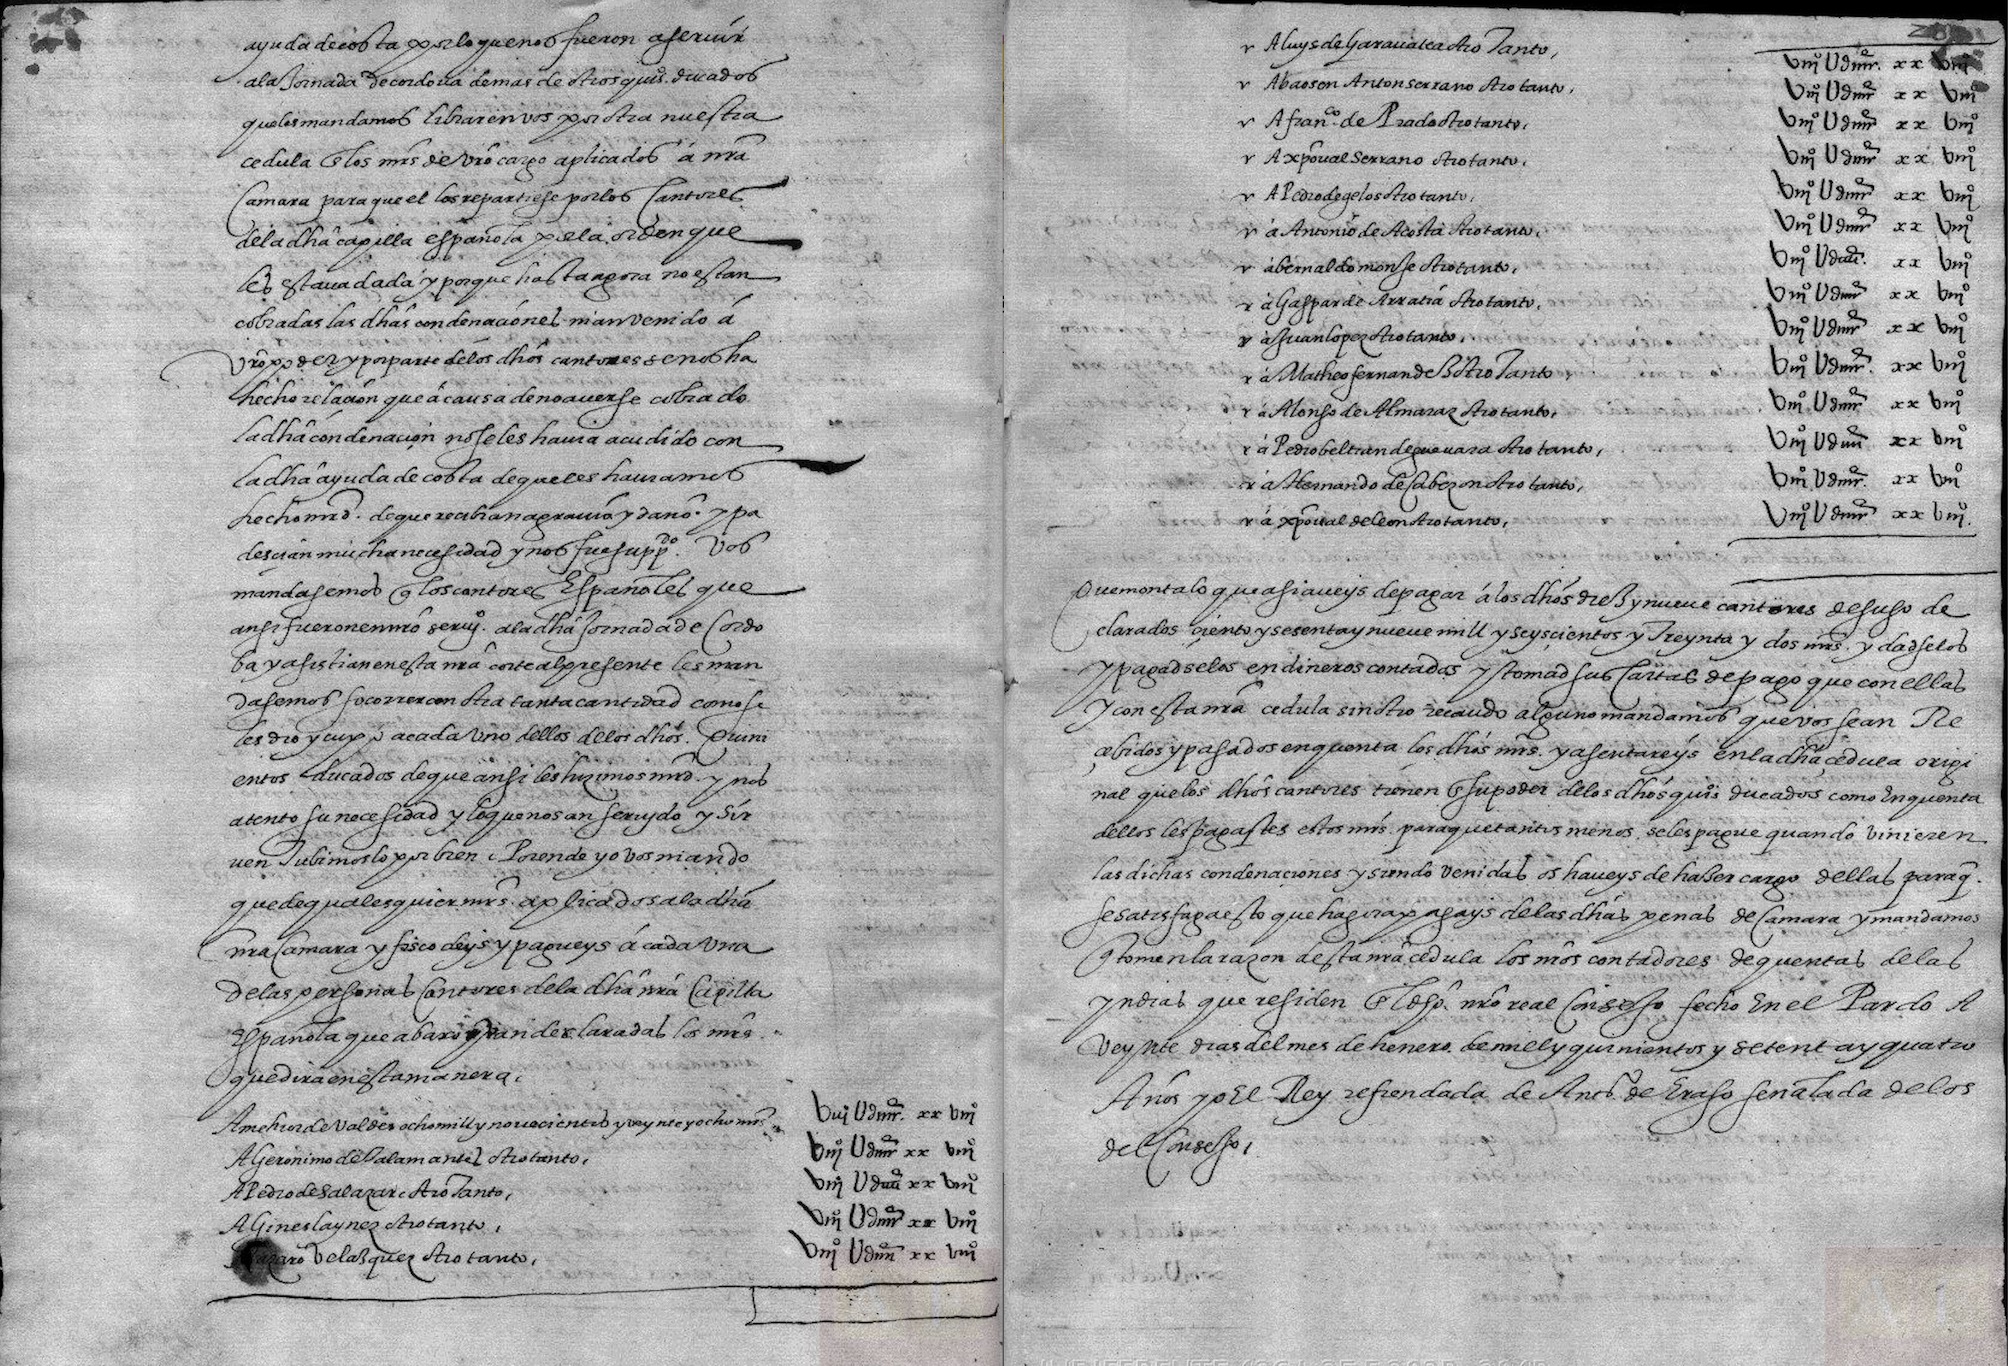 ayuda de costa por lo que nos fueron a seruir
a la Jornada de cordoua demas de otros quis. ducados
que les mandamos librar en vos por otra nuestra
cedula los mrs de vro cargo aplicados á nra
Camara para que el los repartiese por los Cantores
de la dha capilla española por la orden que
les estaua dada y porque hasta agora no estan
cobradas las dhas condenaciones ni an venido á
vro poder y por parte de los dhos cantores se nos ha
hecho relacion que á causa de no auerse cobrado
la dha condenacion no se les hauia acudido con
la dha ayuda de costa de que les hauiamos
hecho mrd. de que reciuian agrauio y daño. y pa
descian mucha necesidad y nos fue suppdo. Vos
mandasemos los cantores Españoles que
ansi fueron en nro serui. a la dha Jornada de Cordo
ba y asistian en esta nra corte al presente les man
dasemos socorrer con otra tanta cantidad como se
les dio y cupo a cada vno dellos de los dhos. Quini
entos ducados de que ansi les hizimos mrd. y nos
atento su necesidad y lo que nos an seruydo y sir
uen Tubimoslo por bien. Porende yo vos mando
que de qualesquier mrs. aplicados a la dha
nra Camara y fisco deys y pagueys á cada vna
de las personas Cantores de la dha nra Capilla
Española que abaxo yran declaradas los mrs.
que dira en esta manera.
A melchior de Valdes ocho mill y nouecientos y veynte y ocho mrs viij U dcccc xx viij
A Geronimo de Salamanca otro tanto. viij U dcccc xx viij
A Pedro de Salazar otro Tanto. viij U dcccc xx viij
A Gines laynez otro tanto. viij U dcccc xx viij
A Lazaro Velasquez otro tanto. viij U dcccc xx viij
r A luys de Garauatea otro Tanto. viij U dcccc xx viij
r A baoson Anton serrano otro tanto. viij U dcccc xx viij
r A franco. de Prado otro tanto. viij U dcccc xx viij
r A xpoual Serrano otro tanto. viij U dcccc xx viij
r A Pedro de gelos otro tanto. viij U dcccc xx viij
r á Antonio de Acosta otro tanto. viij U dcccc xx viij
r á bernaldo monse otro tanto. viij U dcccc xx viij
r á Gaspar de Arratia otro tanto. viij U dcccc xx viij
r á Juan lopez otro tanto. viij U dcccc xx viij
r á Matheo fernandez otro Tanto viij U dcccc xx viij
r á Alonso de Almaraz otro tanto. viij U dcccc xx viij
r á Pedro beltran de gueuara otro tanto. viij U dcccc xx viij
r á Hernando de Cabezon otro tanto. viij U dcccc xx viij
r á xpoual de leon otro tanto. viij U dcccc xx viij
Que monta lo que asi aueys de pagar á los dhos diez y nueue cantores de suso de
clarados çiento y sesenta y nueue mill y seyscientos y Treynta y dos mrs. y dadselos
y pagadselos en dineros contados y tomad sus Cartas de pago que con ellas
y con esta nra cedula sin otro recaudo alguno mandamos que vos sean Re
cebidos y pasados en quenta los dhos mrs. y asentareys en la dha cedula origi
nal que los dhos cantores tienen su poder de los dhos quis ducados como en quenta
dellos les pagastes estos mrs. para que tantos menos se les pague quando vinieren
las dichas condenaciones y siendo venidas os haueys de hazer cargo dellas para q.
se satisfaga esto que hagora pagays de las dhas penas de Camara y mandamos
tomen la razon desta nra cedula los nros contadores de quentas de las
yndias que residen nro real Consejo fecho En el Pardo A
veynte dias del mes de henero de mil y quinientos y setenta y quatro
Años yo El Rey refrendada de Anto. de Eraso señalada de los
del Consejo.